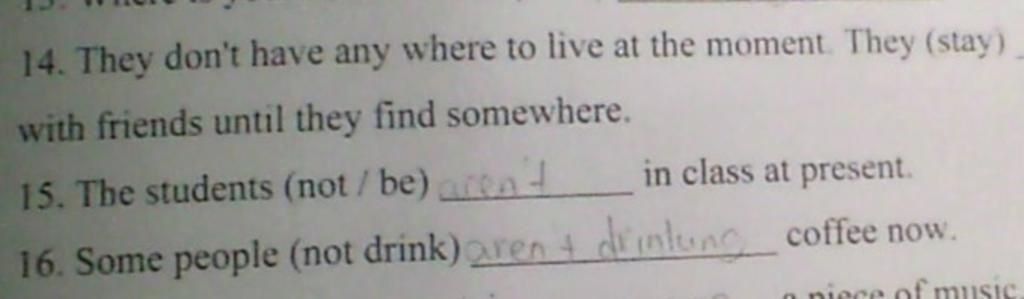 14. They don't have any where to live at the moment. They (stay)
with friends until they find somewhere.
15. The students (not / be) aren't in class at present.
16. Some people (not drink) aren't drinking coffee now.
a piece of music